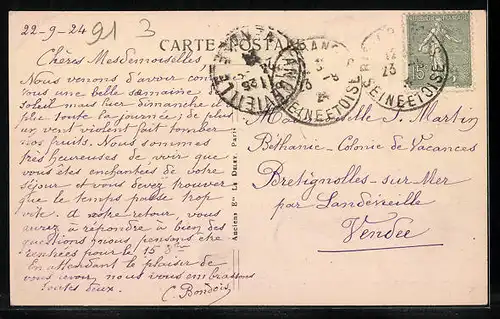 22-9-24
91
3
CARTE POSTALE
Chères Mesdemoiselles
Nous venons d'avoir comme
vous une belle semaine de
soleil mais hier dimanche il a
plu toute la journée; de plus
un vent violent fait tomber
nos fruits. Nous sommes
très heureuses de voir que
vous êtes enchantées de votre
séjour et vous devez trouver
que le temps passe trop
vite. A votre retour, vous
aurez à répondre à bien des
questions; nous pensons être
rentrées pour le 15
En attendant le plaisir de
vous revoir, nous vous embrassons
toutes deux.
C. Bondois
Anciens Ets La Deley, Paris
SEINE-ET-OISE
SEINE-ET-OISE
15
Mademoiselle S. Martin
Béthanie - Colonie de Vacances
Bretignolles-sur-Mer
par Landevieille
Vendée